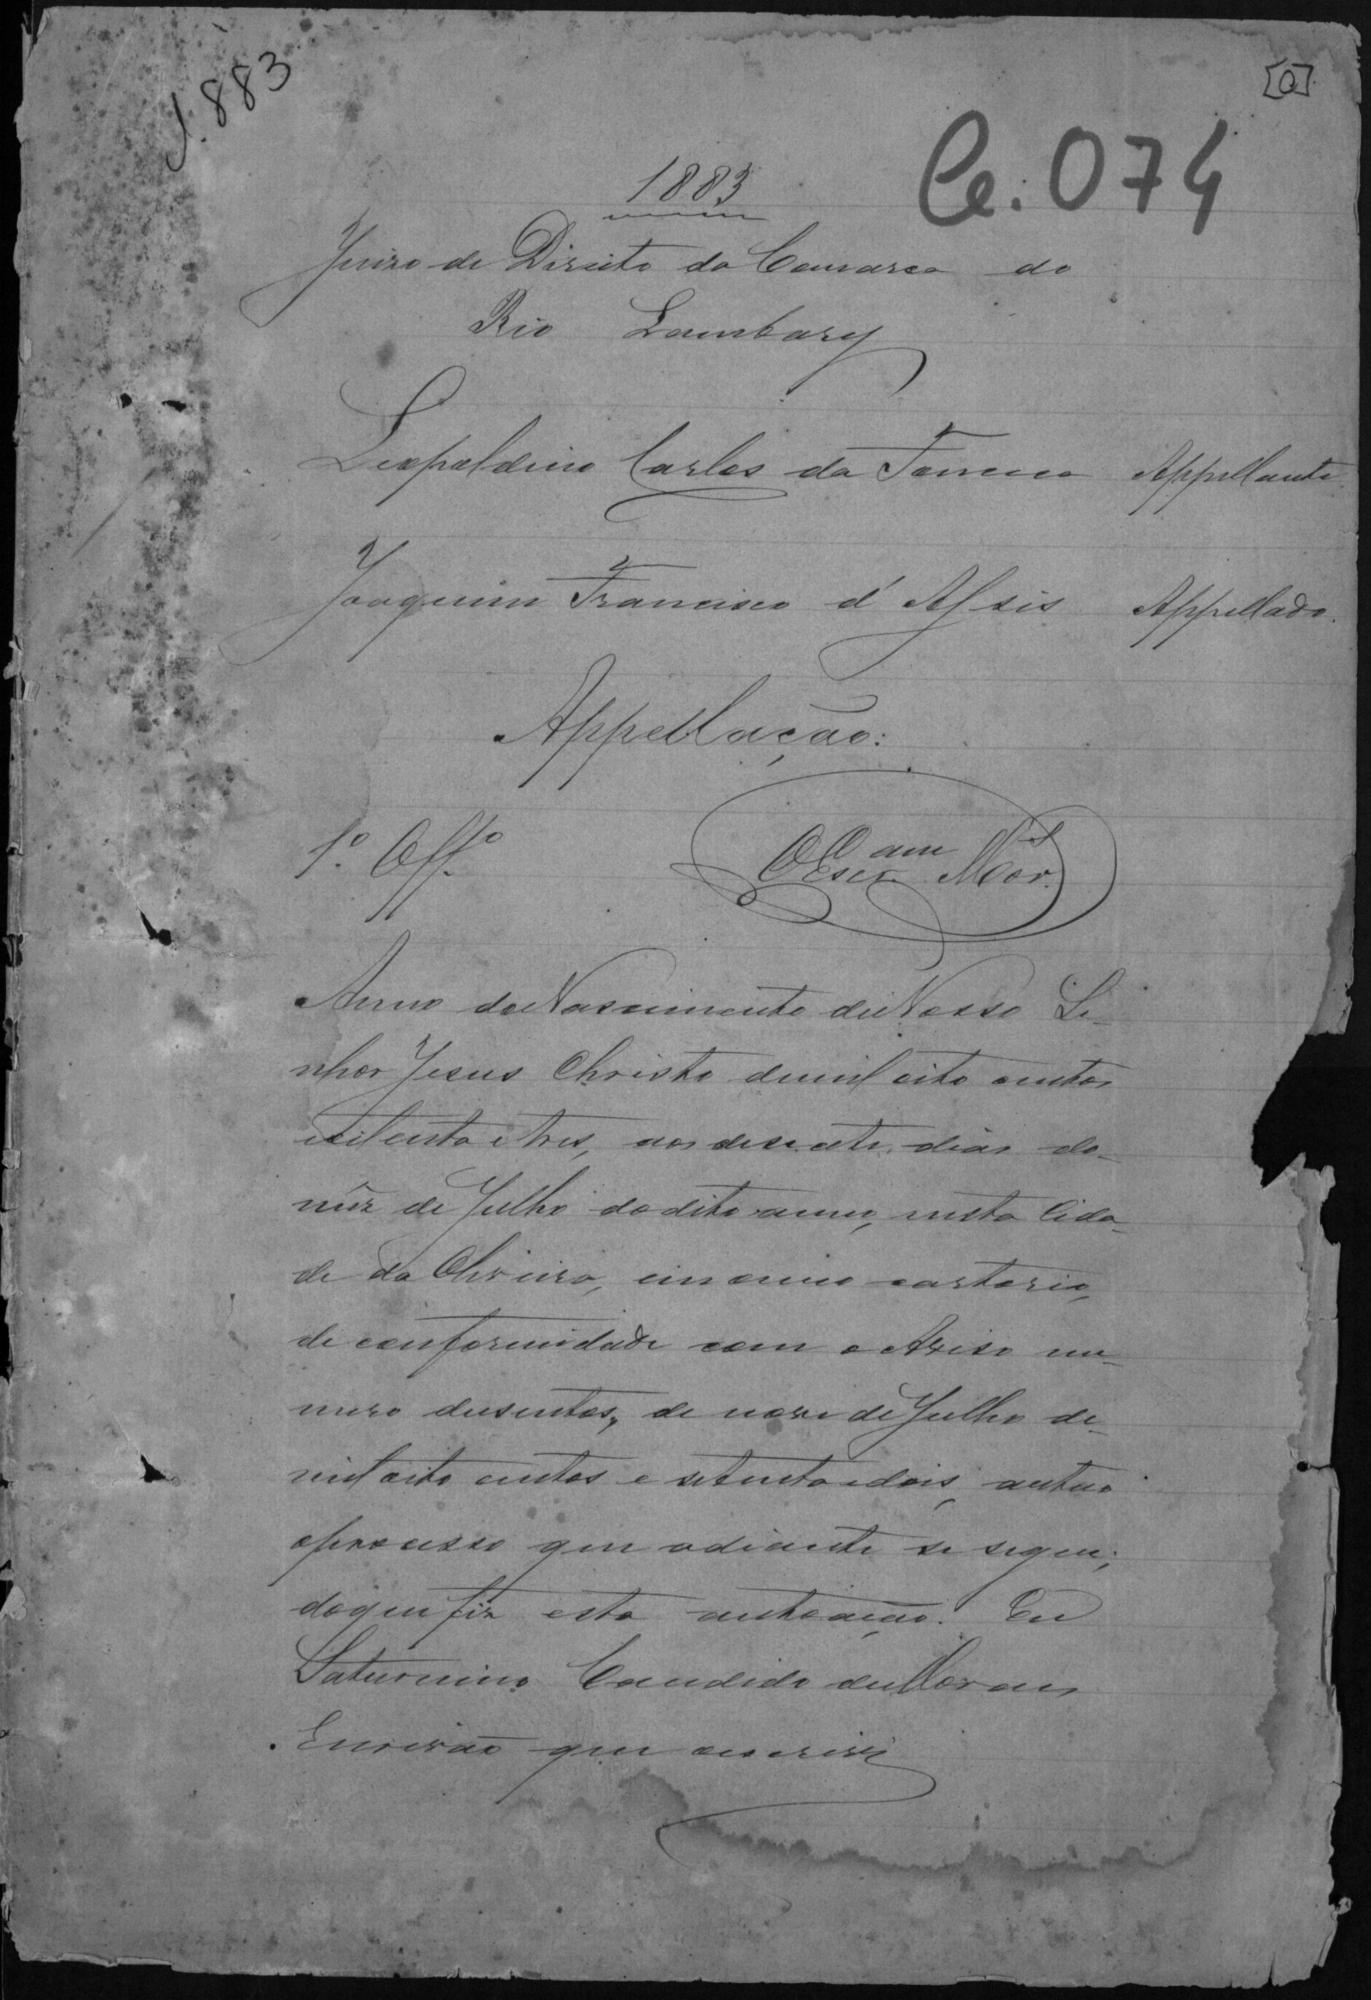 1.883
[0]
Ce. 074
1883
Juizo de Direito da Comarca do
Rio Lambary
Leopoldino Carlos da Fonseca Appellante
Joaquim Francisco d'Assis Appellado.
Appellação:
1º. Offº.
O Escram Mor.
Anno do Nascimento de Nosso Se-
nhor Jesus Christo de mil oito centos
e oitenta e tres, aos desesete dias do
mez de Julho do dito anno, nesta Cida-
de da Oliveira, em meu cartorio,
de conformidade com o Aviso nu-
mero dusentos, de nove de Julho de
mil oito centos e setenta e dois, autuo
o processo que adiante se segue;
do que fiz esta autoação. Eu
Saturnino Candido de Moraes
Escrivão que escrevi